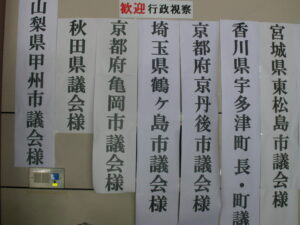 歓迎 行政視察
宮城県東松島市議会様
香川県宇多津町 長・町議
京都府京丹後市議会様
埼玉県鶴ヶ島市議会様
京都府亀岡市議会様
秋田県議会様
山梨県甲州市議会様